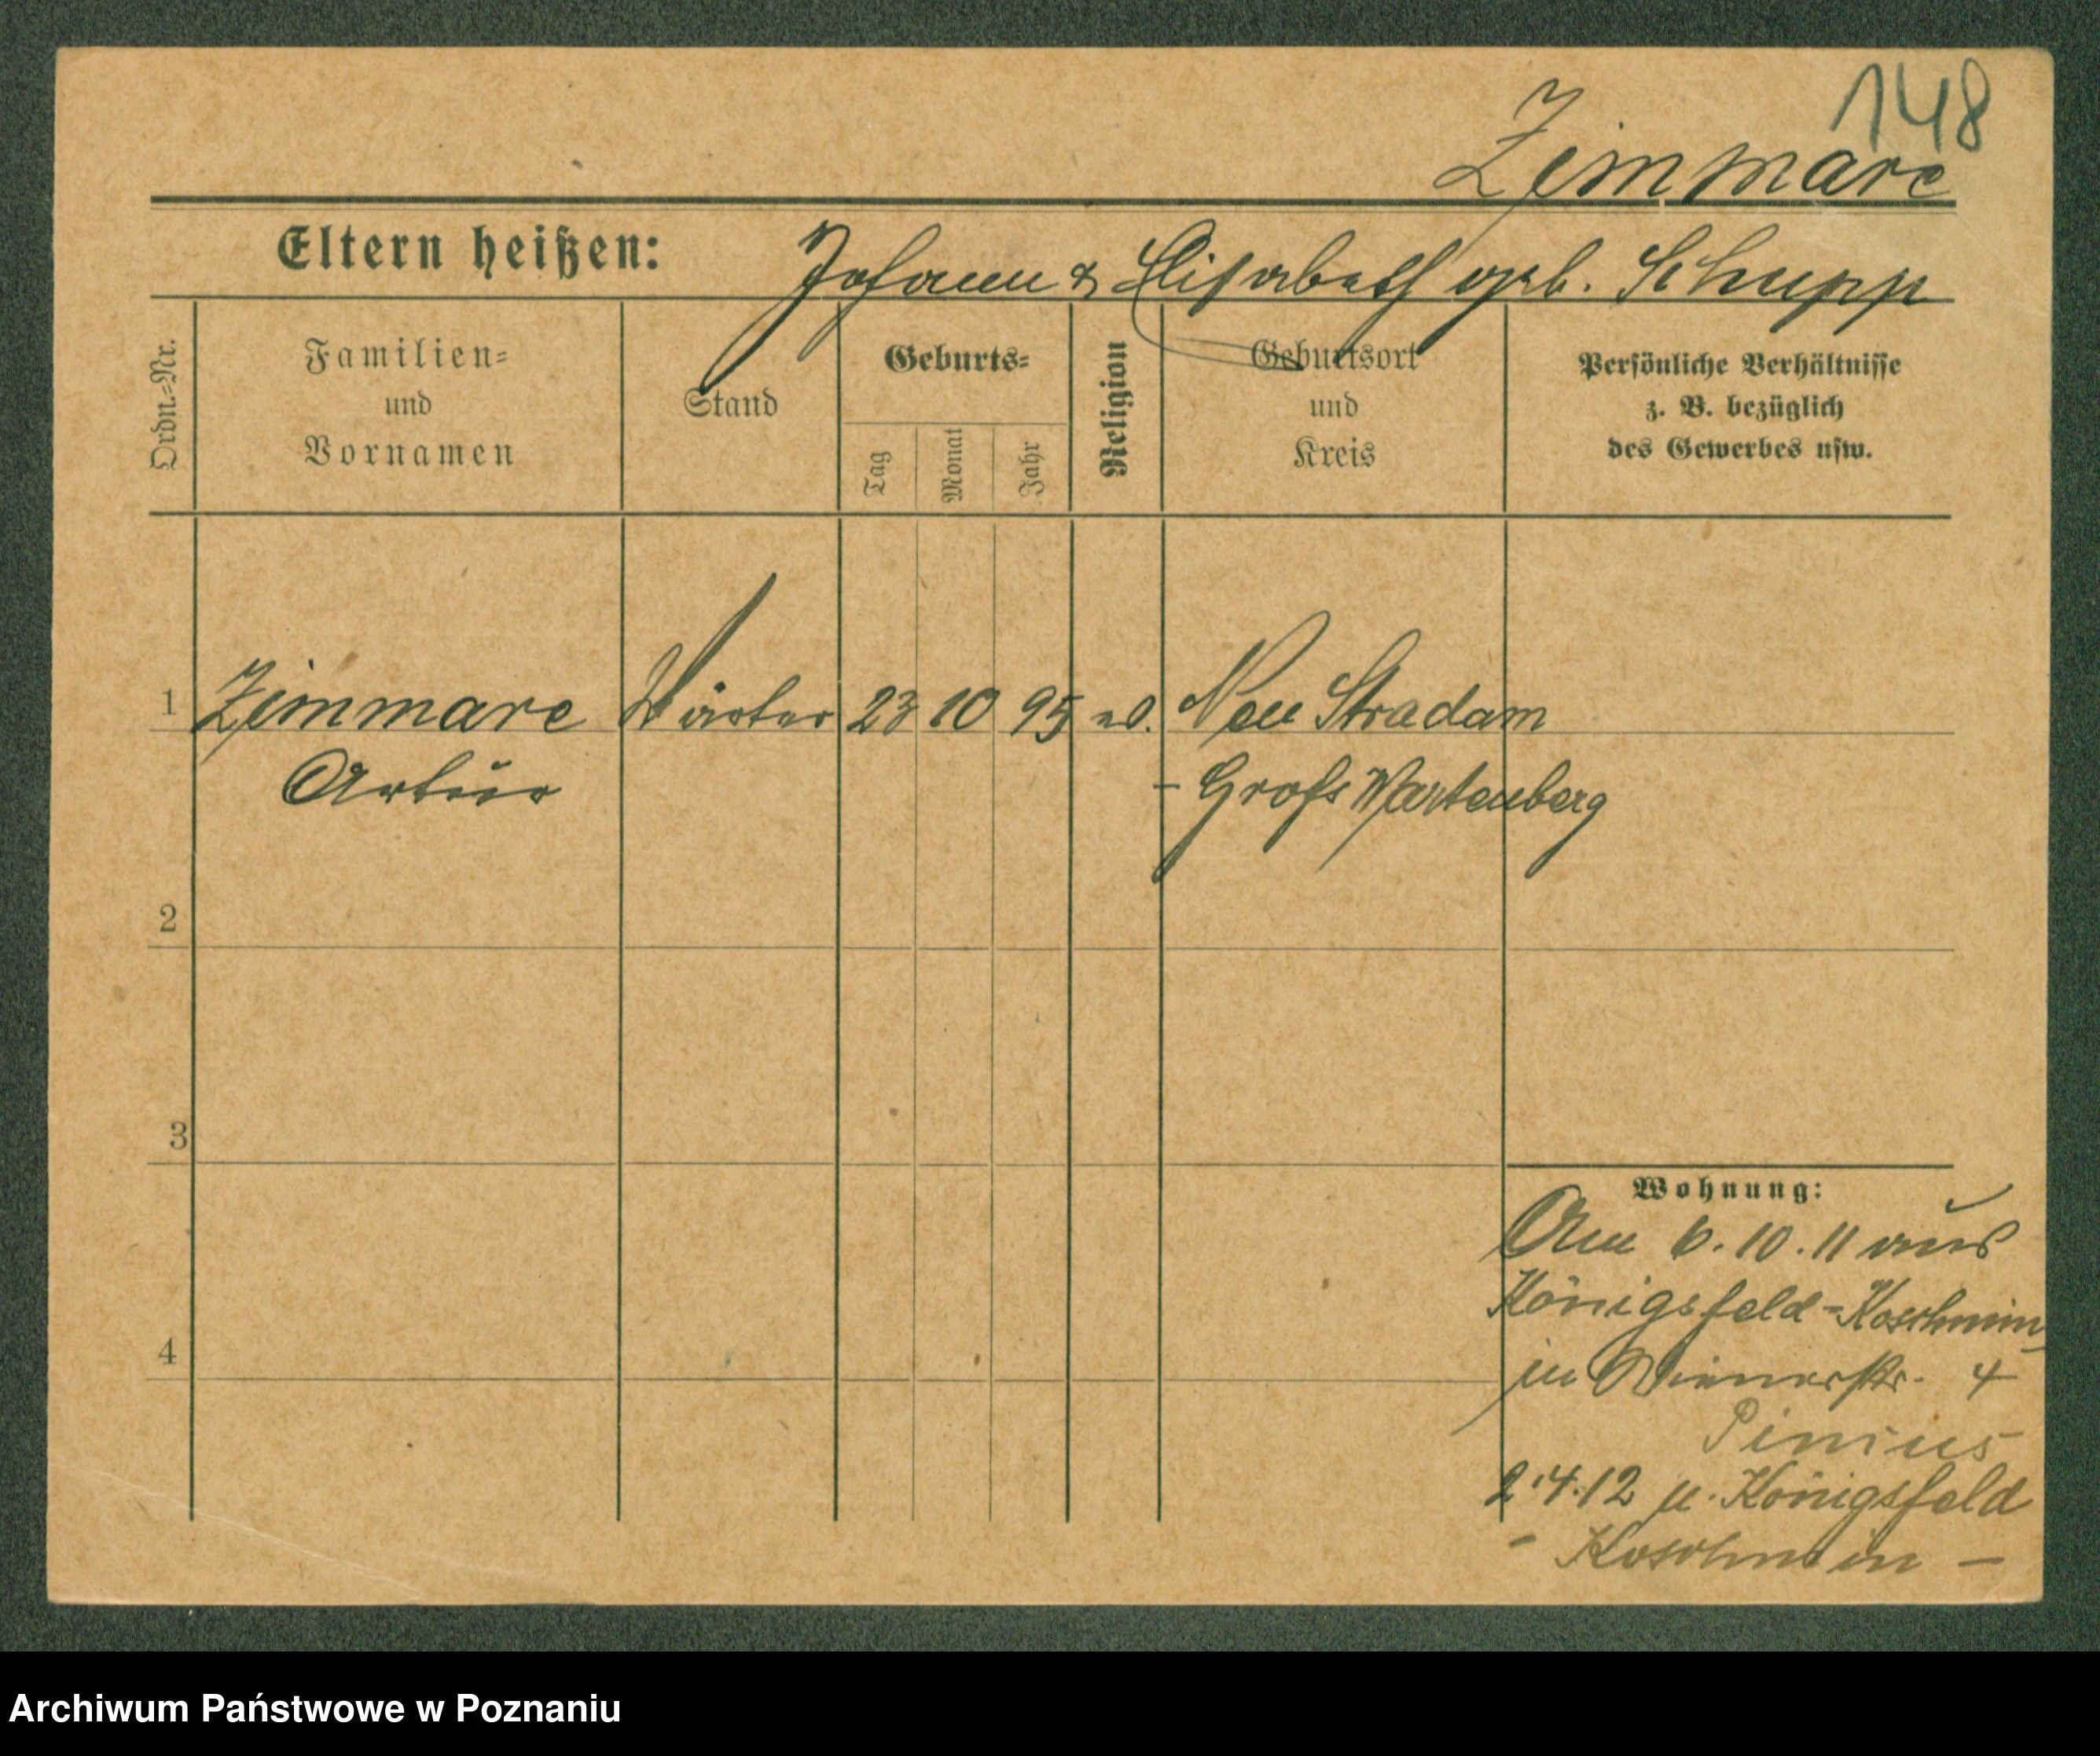 148
Zimmare
Eltern heißen: Johann & Elisabeth geb. Schupp
Ordn.=Nr.
Familien=
und
Vornamen
Stand
Geburts=
Tag
Monat
Jahr
Religion
Geburtsort
und
Kreis
Persönliche Verhältnisse
z. B. bezüglich
des Gewerbes usw.
1 Zimmare Wärter 23 10 95 ev. Neu Stradam
Artur - Groß Wartenberg
2
3
4
Wohnung:
Am 6.10.11 aus
Königsfeld-Koschmin
in 4
Pinius
2.4.12 n. Königsfeld
- Koschmin -
Archiwum Państwowe w Poznaniu